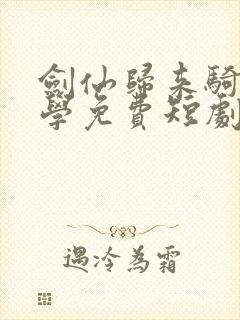 劍仙歸來騎
學免費短劇
遇冷為霜